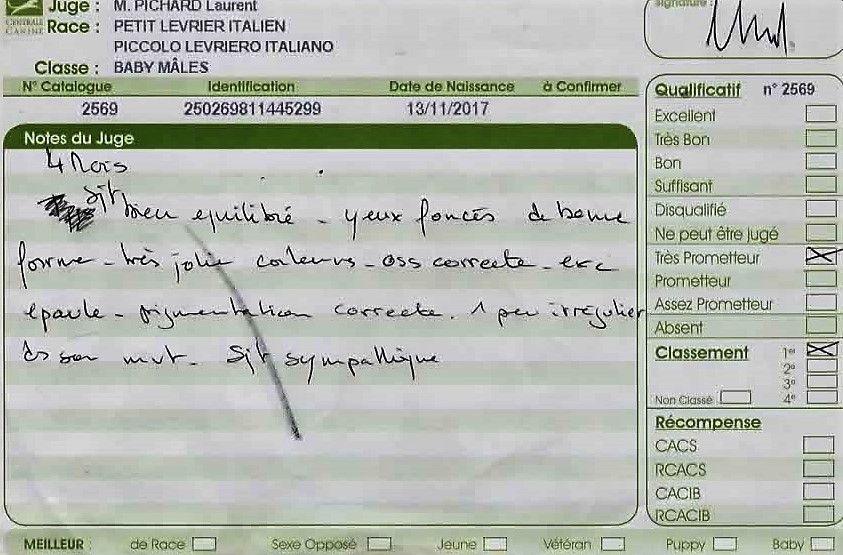 Juge : M. PICHARD Laurent
CENTRALE CANINE
Race : PETIT LEVRIER ITALIEN
PICCOLO LEVRIERO ITALIANO
Classe : BABY MÂLES
signature :
N° Catalogue Identification Date de Naissance à Confirmer
2569 250269811445299 13/11/2017
Notes du Juge
4 Mois
Sjt bien equilibré - yeux foncés de bonne
forme - très jolie couleurs - oss correcte - exc
epaule - pigmentation correcte. 1 peu irrégulier
ds son mvt - Sjt sympathique
Qualificatif n° 2569
Excellent
Très Bon
Bon
Suffisant
Disqualifié
Ne peut être jugé
Très Prometteur
Prometteur
Assez Prometteur
Absent
Classement 1er
2e
3e
Non Classé 4e
Récompense
CACS
RCACS
CACIB
RCACIB
MEILLEUR : de Race Sexe Opposé Jeune Vétéran Puppy Baby